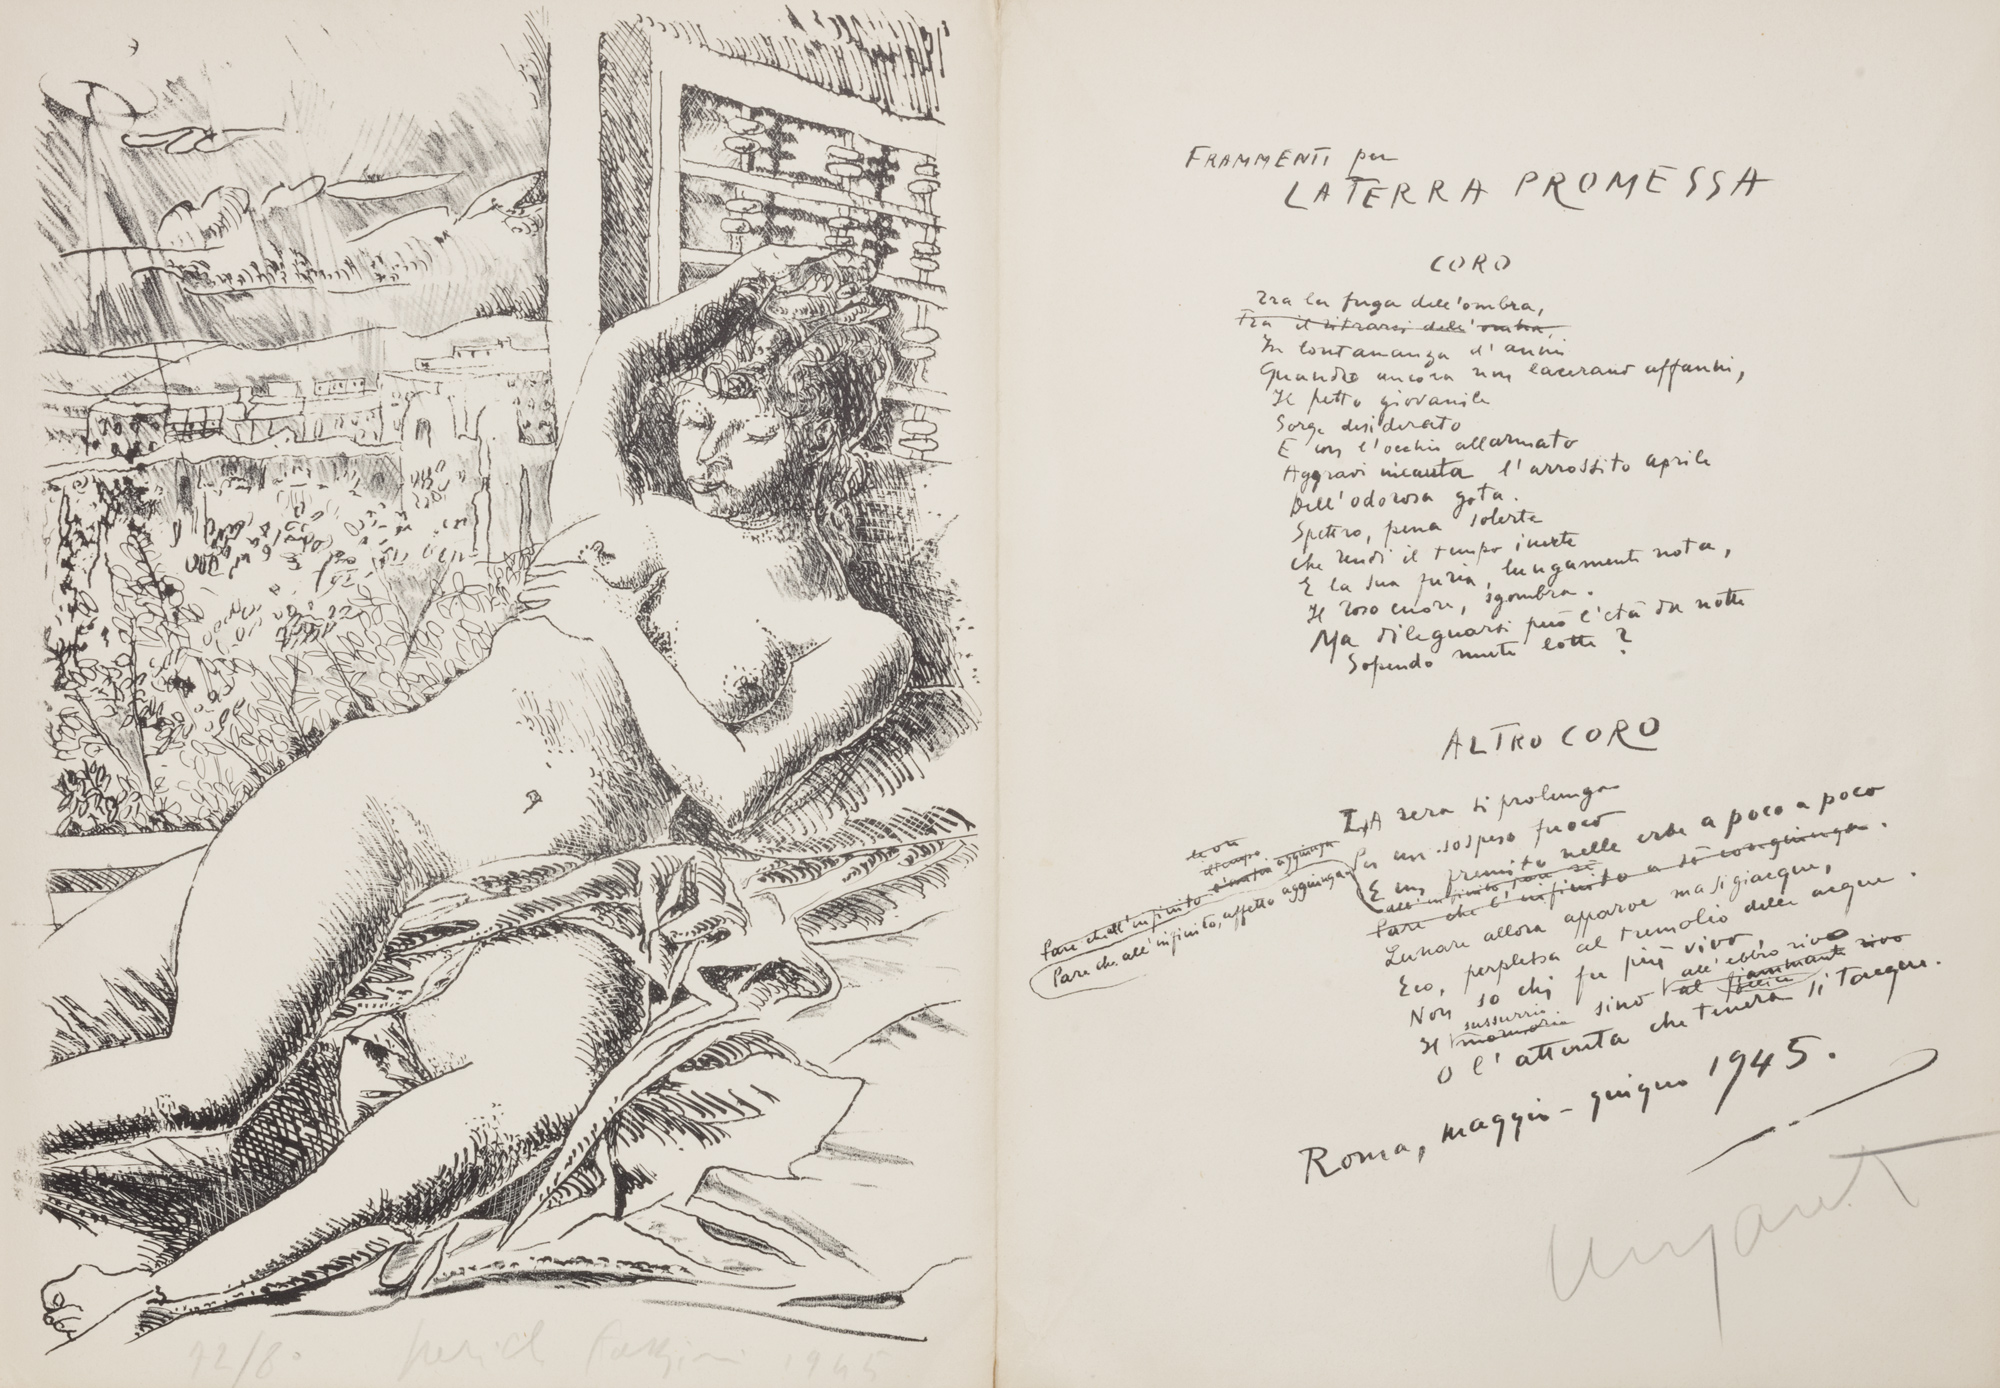 FRAMMENTI per
LA TERRA PROMESSA
CORO
Tra la fuga dell'ombra,
Tra il ritrarsi dell'ombra,
In lontananza d'anni
Quando ancora non lacerano affanni,
Il petto giovanile
Sorge desiderato
E con l'occhio allarmato
Aggravi incauta l'arrossito aprile
Dell'odorosa gota.
Spettro, pena solerte
Che rendi il tempo inerte
E la sua furia, lungamente nota,
Il roso cuore, sgombra.
Ma dileguarsi può l'età da notte
Sopendo mute lotte?
ALTRO CORO
LA sera si prolunga
Per un sospeso fuoco
E un fremito nelle erbe a poco a poco
Pare che l'infinito a sé congiunga.
Pare che all'infinito
Pare che all'infinito, affetto aggiunga
Lunare allora apparve ma si giacque,
Eco, perplessa al tremolio delle acque.
Non so chi fu più vivo
all'ebbro rivo
Il sussurrio sino al rivo
O l'attenta che tenera si tacque.
Roma, maggio - giugno 1945.
Ungaretti
1945